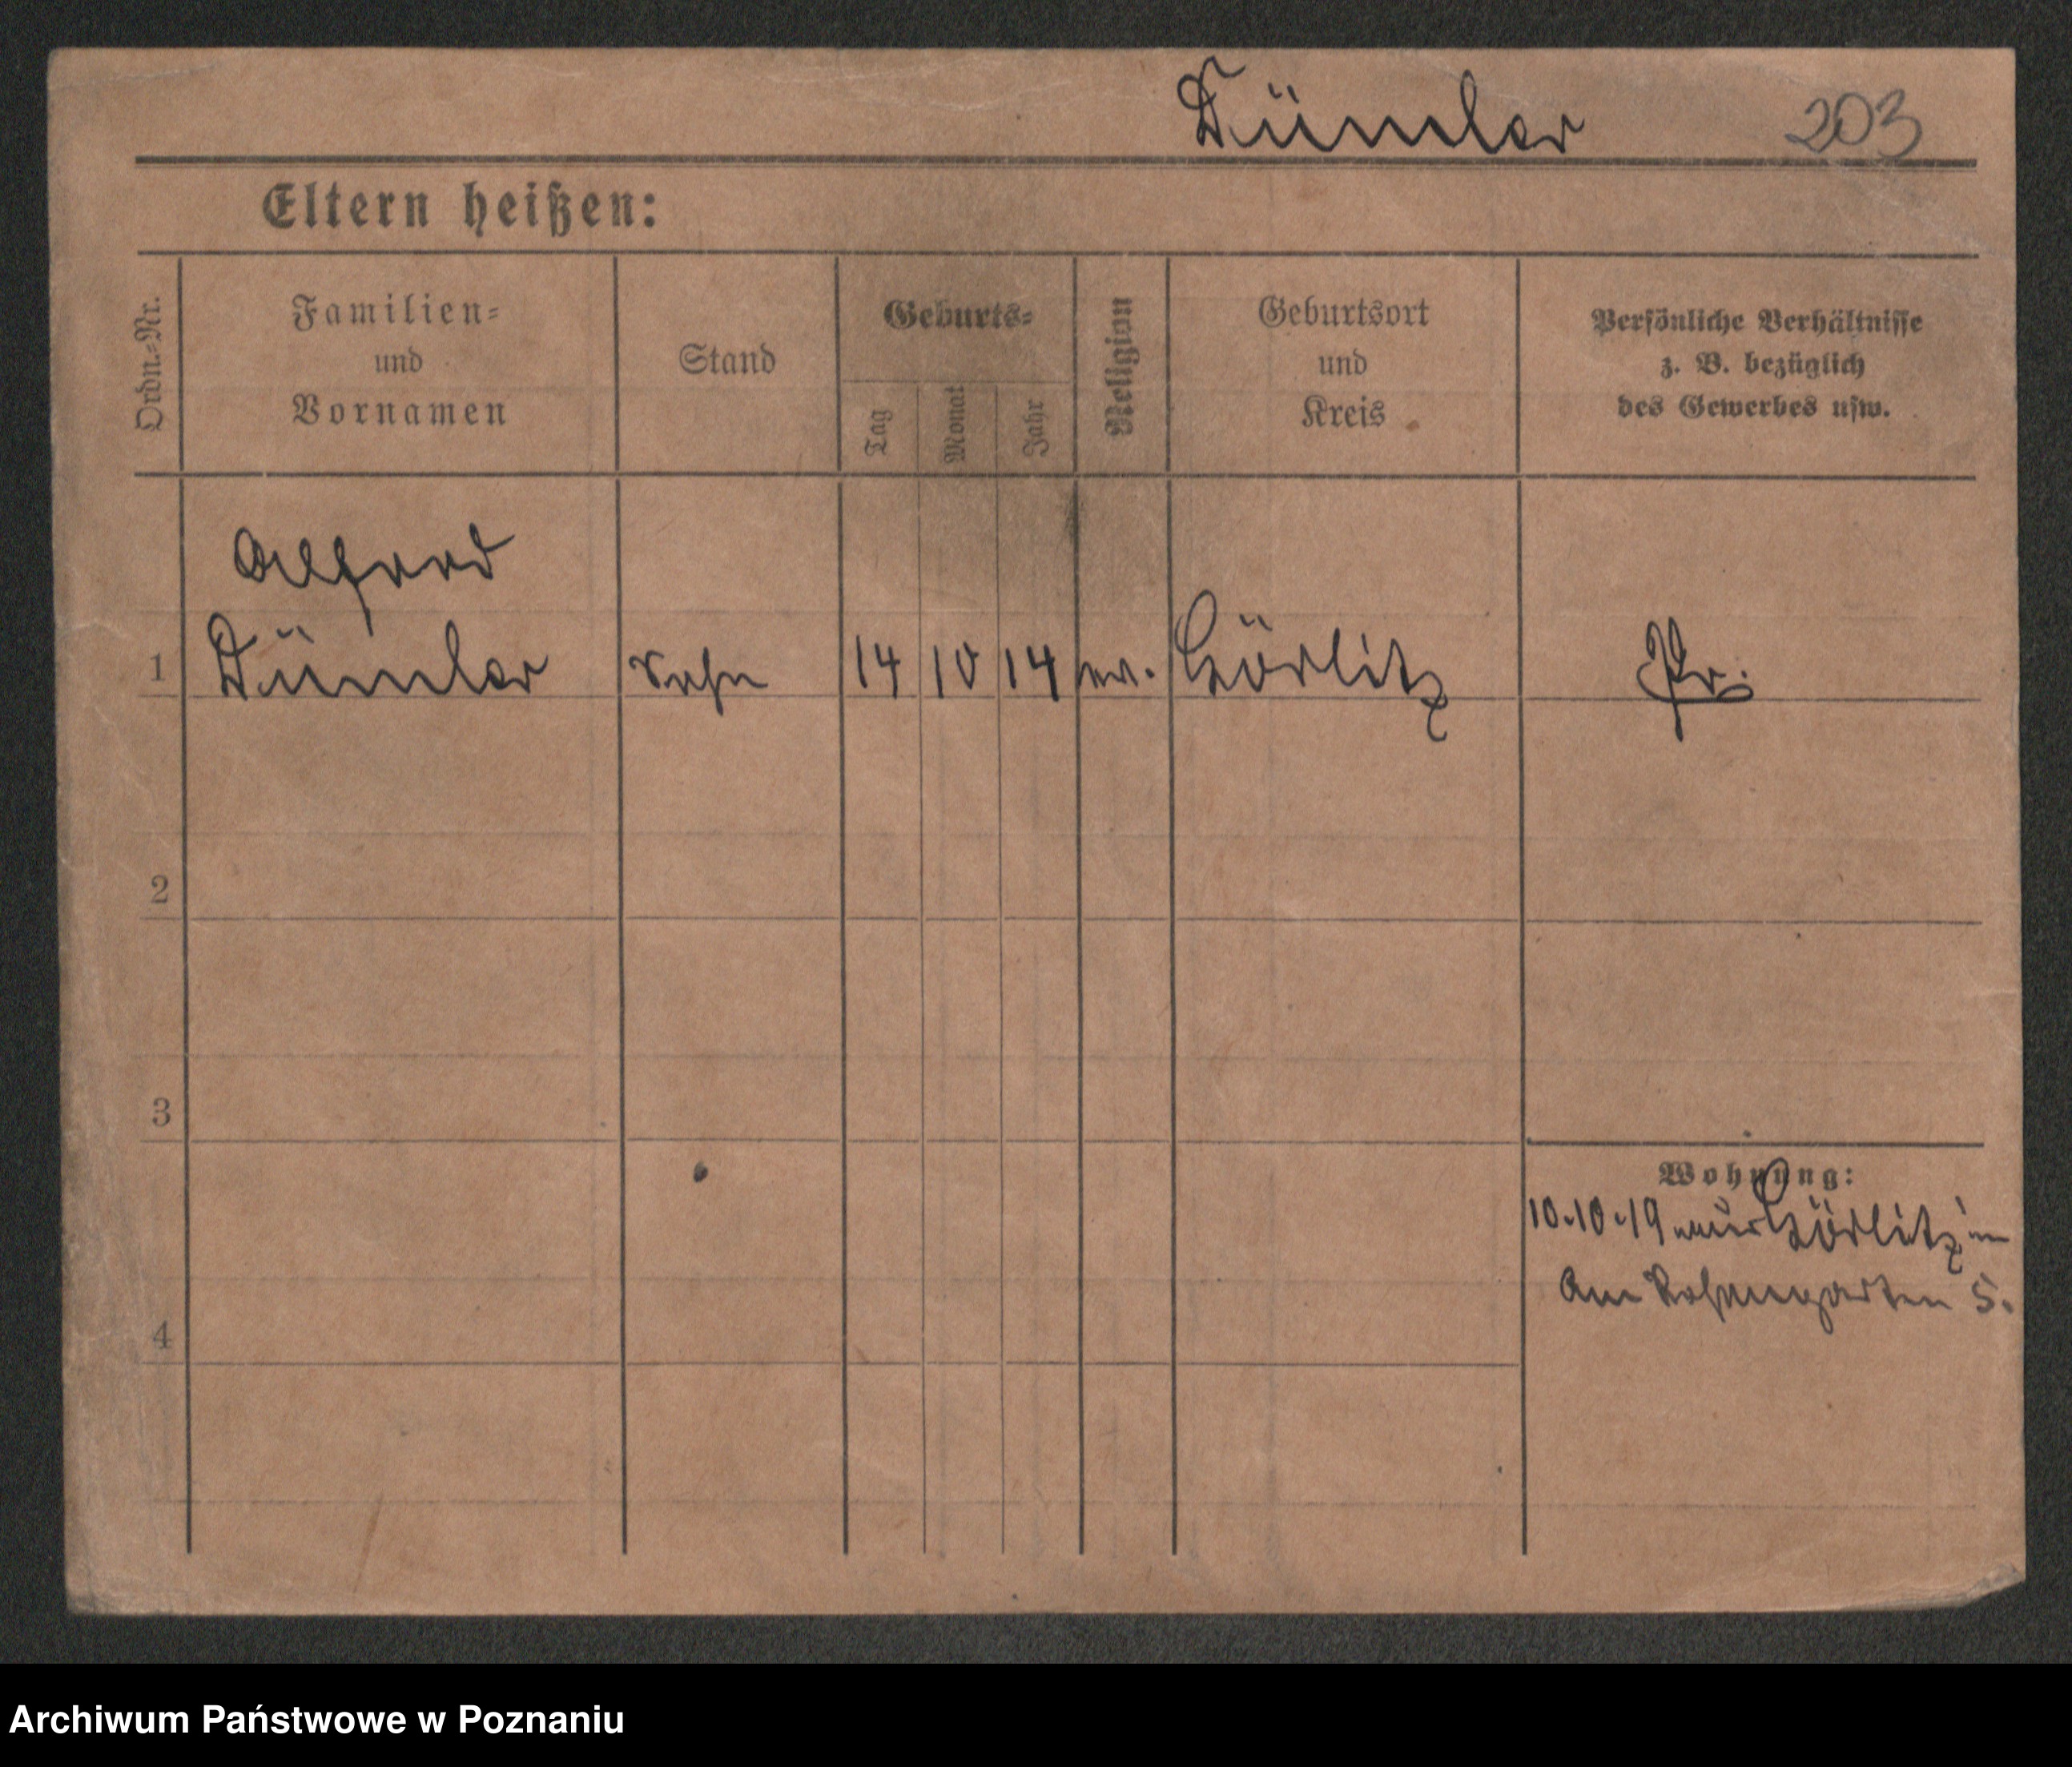 Dümler 203
Eltern heißen:
Ordn.-Nr.
Familien-
und
Vornamen
Stand
Geburts-
Tag
Monat
Jahr
Religion
Geburtsort
und
Kreis
Persönliche Verhältnisse
z. B. bezüglich
des Gewerbes usw.
Alfred
1 Dümler Sohn 14 10 14 ev. Görlitz Pr.
2
3
Wohnung:
10.10.19 Görlitz
Am 5.
4
Archiwum Państwowe w Poznaniu